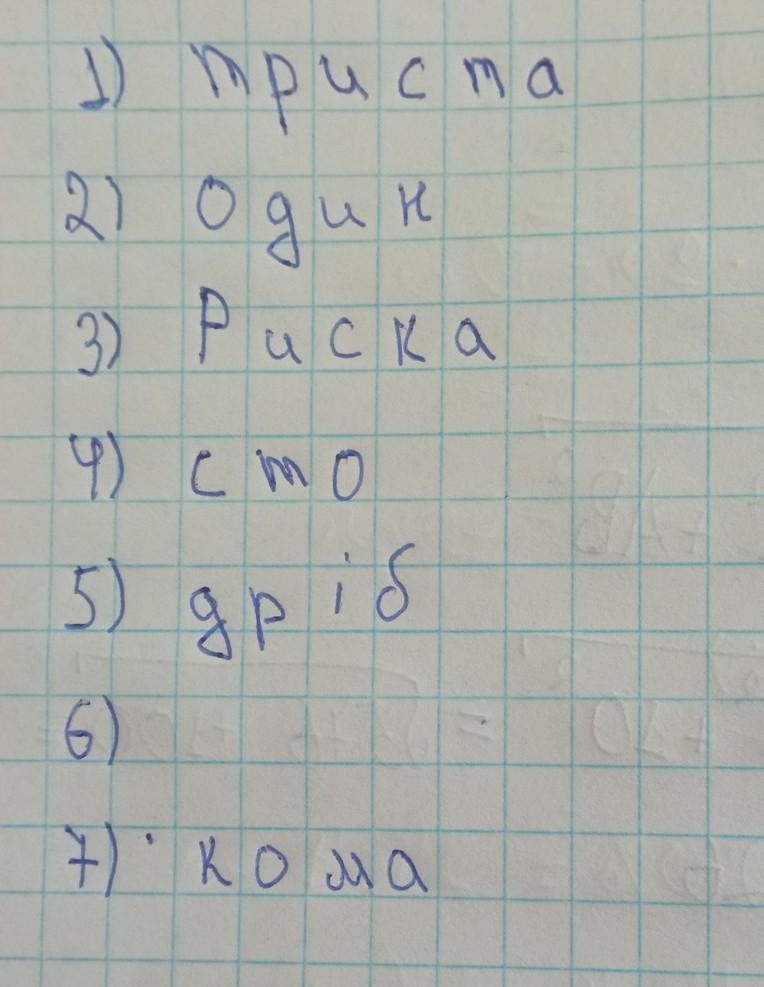 1) триста
2) Один
3) Риска
4) сто
5) дріб
6)
7) кома